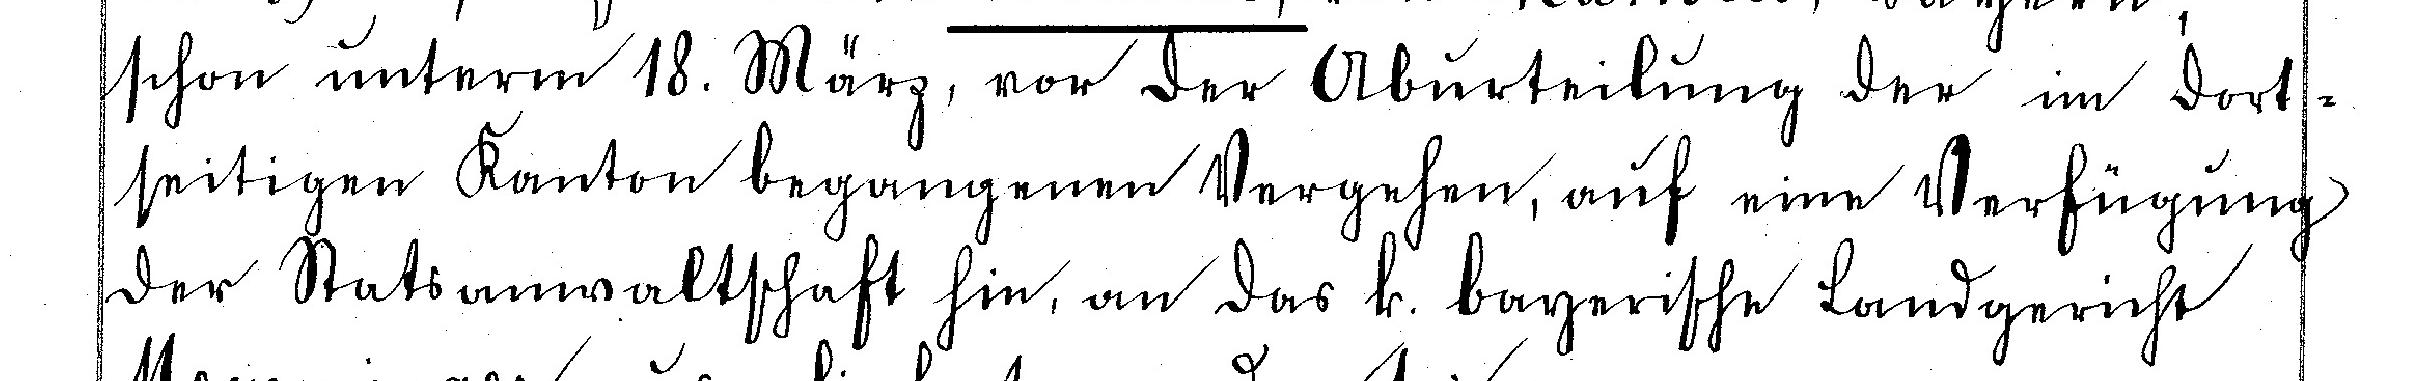 schon unterm 18. März, vor der Aburteilung der im dort-
seitigen Kanton begangenen Vergehen, auf eine Verfügung
der Statsanwaltschaft hin, an das k. bayerische Landgericht